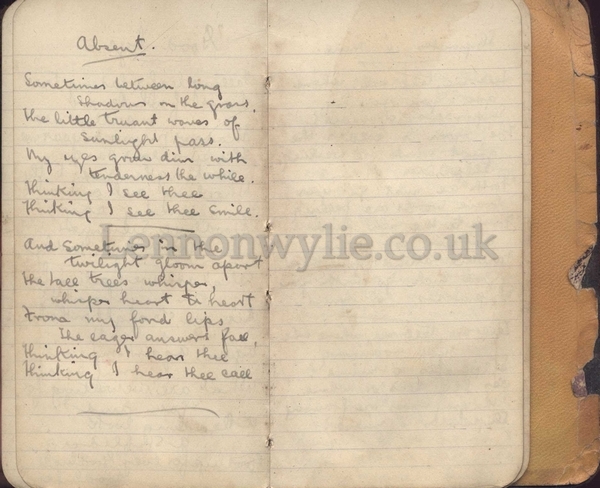 Absent.
Sometimes between long
Shadows on the grass.
The little truant waves of
Sunlight pass.
My eyes grow dim with
tenderness the while.
Thinking I see thee
Thinking I see thee smile.
And Sometimes in the
twilight gloom apart
The tall trees whisper,
whisper heart to heart
From my fond lips
The eager answers fall,
Thinking I hear thee
Thinking I hear thee call
Lennonwylie.co.uk